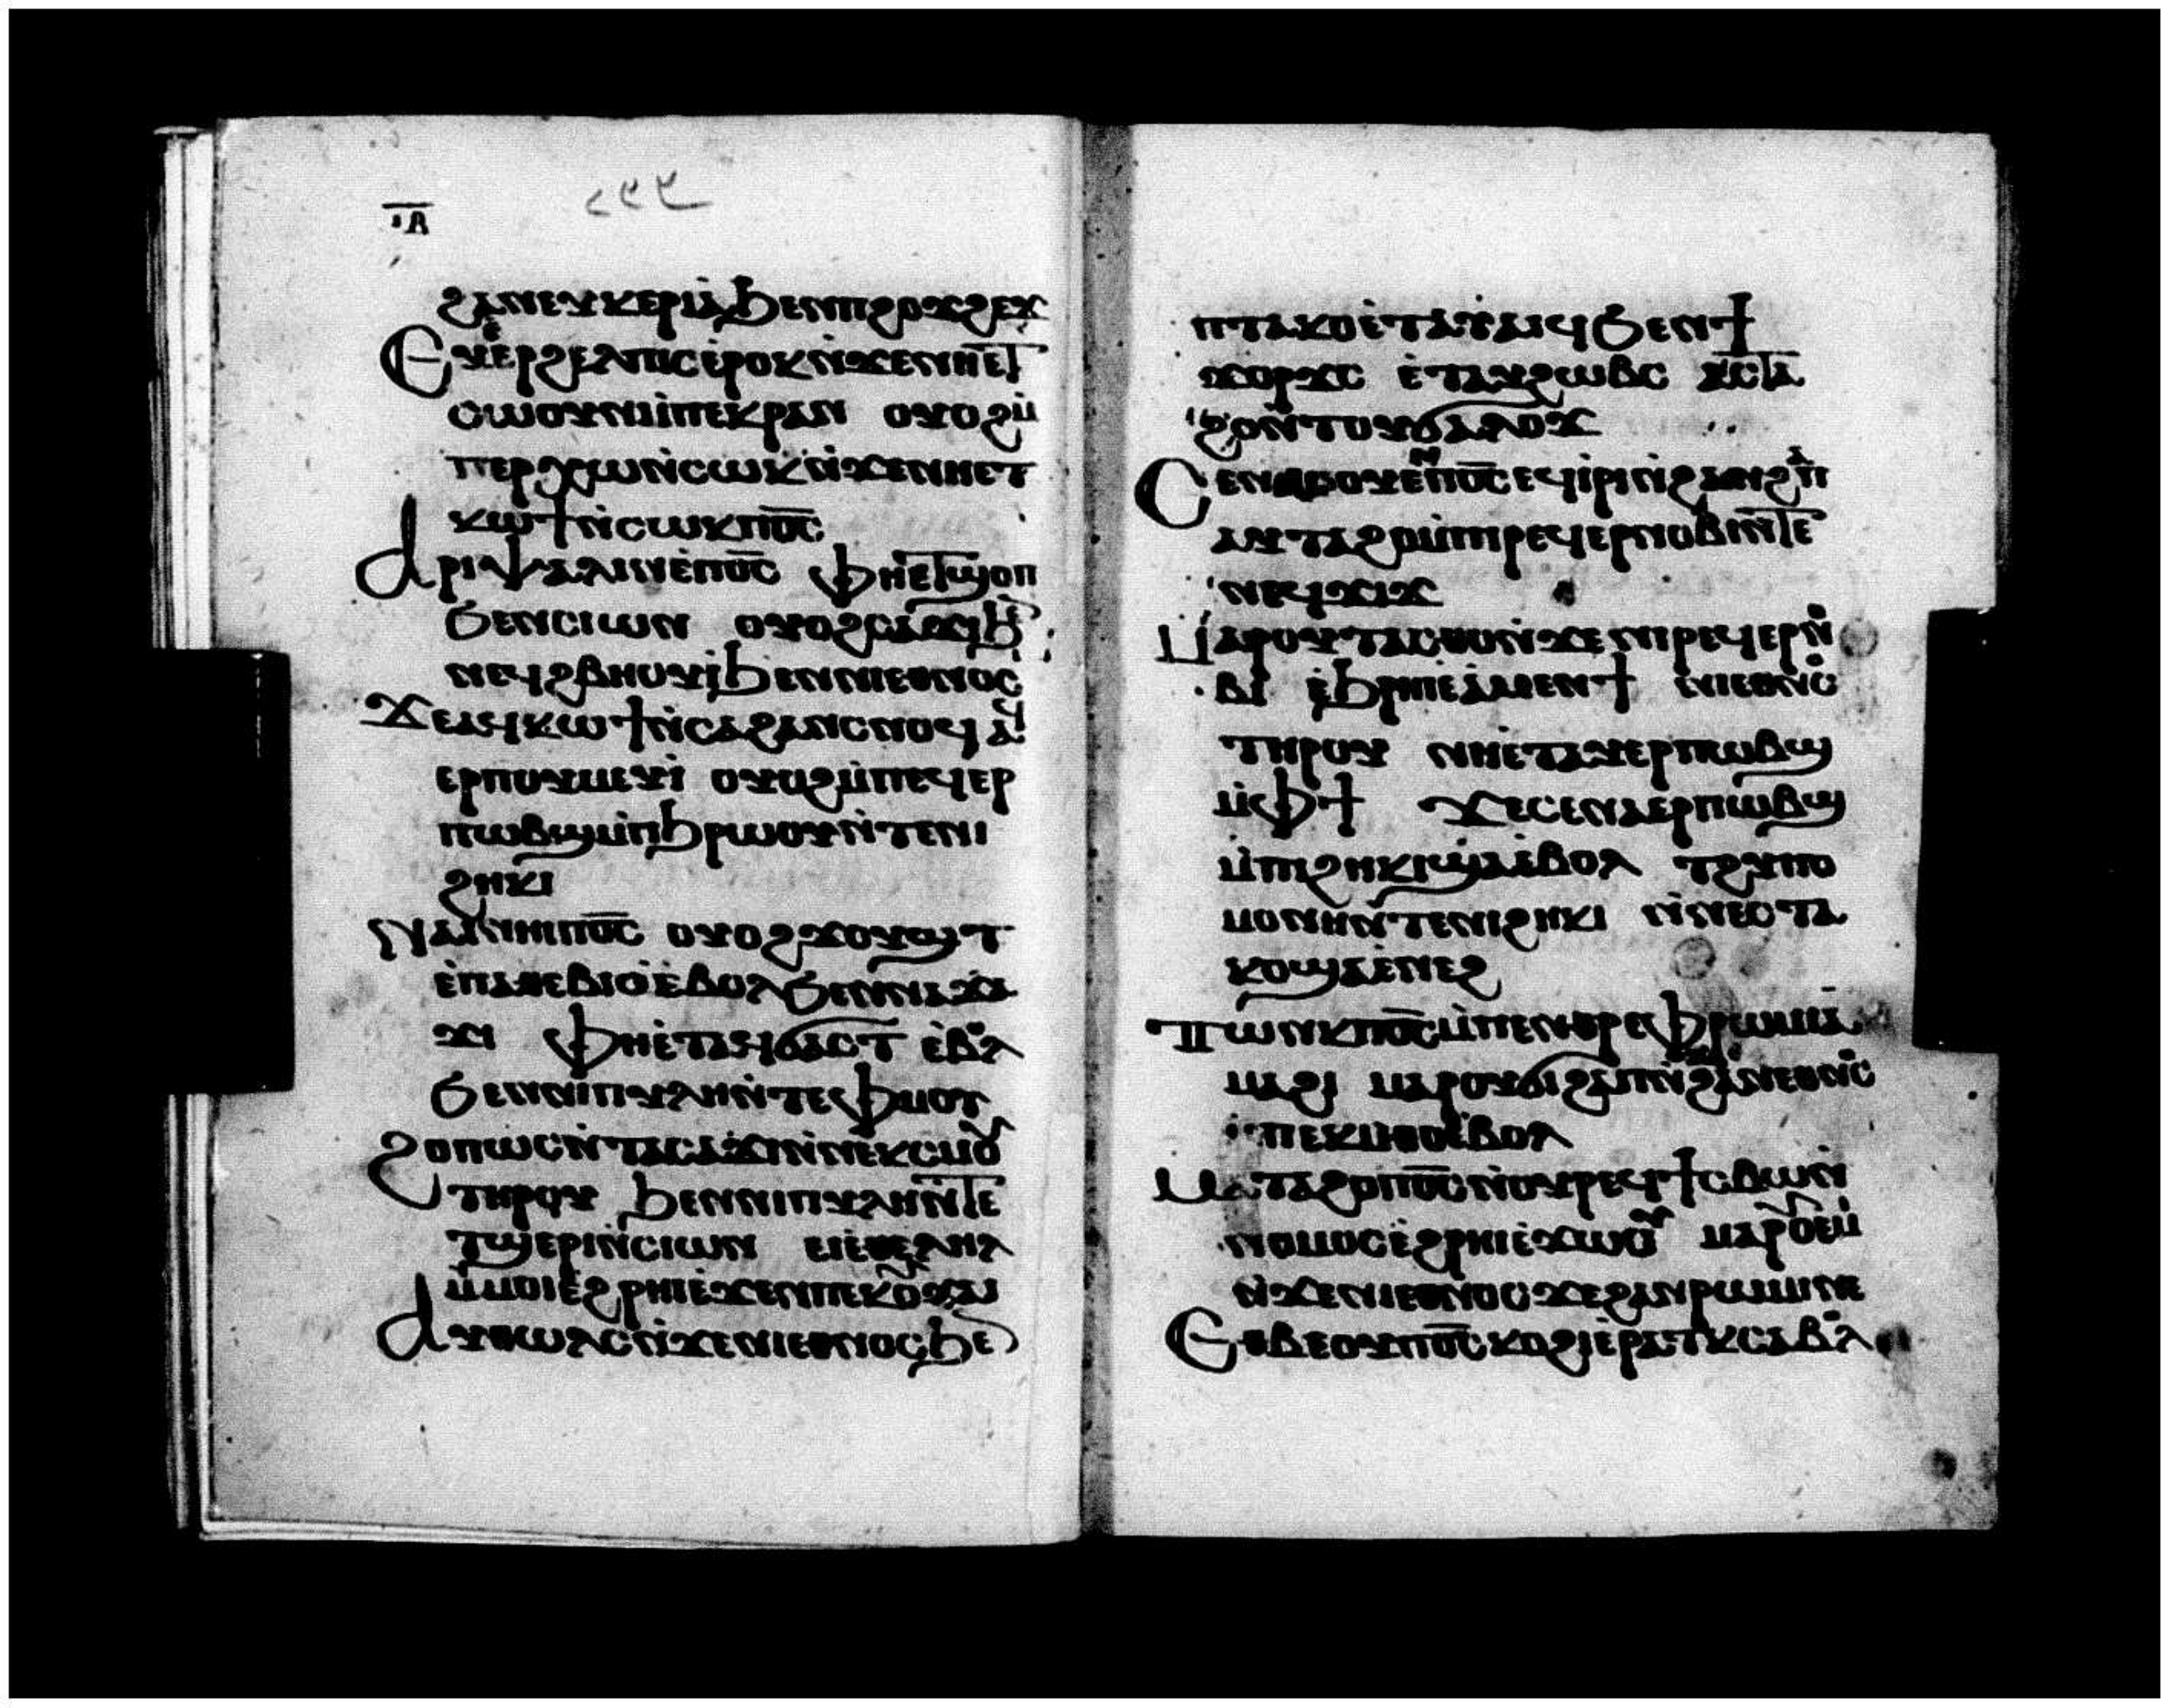 ⲓⲁ
ϩⲁⲛⲉⲩⲕⲉⲣⲓⲁ̀ϧⲉⲛⲡϩⲟϫϩⲉϫ
Ⲉⲩⲉ̀ⲣϩⲉⲗⲡⲓⲥⲉ̀ⲣⲟⲕⲛ̀ϫⲉⲛⲏⲉⲧ
ⲥⲱⲟⲩⲛⲙ̀ⲡⲉⲕⲣⲁⲛ ⲟⲩⲟϩⲙ̀
ⲡⲉⲣⲭⲱⲛ̀ⲥⲱⲕⲛ̀ϫⲉⲛⲏⲉⲧ
ⲕⲱϯⲛ̀ⲥⲱⲕⲡⲟ̅ⲥ̅
Ⲁⲣⲓⲯⲁⲗⲓⲛⲉ̀ⲡⲟ̅ⲥ̅ ⲫⲏⲉ̀ⲧϣⲟⲡ
ϧⲉⲛⲥⲓⲱⲛ ⲟⲩⲟϩⲥⲁϫⲓϧⲉ
ⲛⲉϥϩⲃⲏⲟⲩⲓ̀ϧⲉⲛⲛⲓⲉⲑⲛⲟⲥ
Ϫⲉⲁϥⲕⲱϯⲛ̀ⲥⲁϩⲁⲛⲥⲛⲟϥ ⲁϥ
ⲉⲣⲡⲟⲩⲙⲉⲩⲓ̀ ⲟⲩⲟϩⲙ̀ⲡⲉϥⲉⲣ
ⲡⲱⲃϣⲙ̀ⲡϧⲣⲱⲟⲩⲛ̀ⲧⲉⲛⲓ
ϩⲏⲕⲓ
Ⲛⲁⲓⲛⲏⲓⲡⲟ̅ⲥ̅ ⲟⲩⲟϩϫⲟⲩϣⲧ
ⲉ̀ⲡⲁⲑⲉⲃⲓⲟ̀ⲉ̀ⲃⲟⲗϧⲉⲛⲛⲁϫⲁ
ϫⲓ ⲫⲏⲉ̀ⲧⲁϥϭⲁⲥⲧ ⲉ̀ⲃⲟⲗ
ϧⲉⲛⲛⲓⲡⲩⲗⲏⲛ̀ⲧⲉⲫⲙⲟⲩ
Ϩⲟⲡⲱⲥⲛ̀ⲧⲁⲥⲁϫⲓⲛ̀ⲛⲉⲕⲥⲙⲟⲩ
ⲧⲏⲣⲟⲩ ϧⲉⲛⲛⲓⲡⲩⲗⲏⲛ̀ⲧⲉ
ⲧϣⲉⲣⲓⲛ̀ⲥⲓⲱⲛ ⲉⲓⲉ̀ⲑⲉⲗⲏⲗ
ⲙ̀ⲙⲟⲓⲉ̀ϩⲣⲏⲓⲉ̀ϫⲉⲛⲡⲉⲕⲟⲩϫⲁⲓ
Ⲁⲩⲑⲱⲗⲥⲛ̀ϫⲉⲛⲓⲉⲑⲛⲟⲥϧⲉ
ⲡⲧⲁⲕⲟⲉ̀ⲧⲁⲩⲁⲓϥϧⲉⲛϯ
ϫⲟⲣϫⲥ ⲉ̀ⲧⲁⲩϩⲱⲃⲥ ϫⲥⲧⲁ
ϩⲟⲛ̀ⲧⲟⲩϭⲁⲗⲟϫ
Ⲥⲉⲛⲁⲥⲟⲩⲉⲛⲡⲟ̅ⲥ̅ⲉϥⲓ̀ⲣⲓⲛ̀ϩⲁⲛϩⲁⲡ
ⲁⲩⲧⲁϩⲟⲙ̀ⲡⲓⲣⲉϥⲉⲣⲛⲟⲃⲓⲛ̀ⲧⲉ
ⲛⲉϥϫⲓϫ
Ⲙⲁⲣⲟⲩⲧⲁⲥⲑⲟⲛ̀ϫⲉⲛⲓⲣⲉϥⲉⲣⲛⲟ
ⲃⲓ ⲉ̀ϧⲣⲏⲓⲉ̀ⲁⲙⲉⲛϯ ⲛⲓⲉⲑⲛⲟⲥ
ⲧⲏⲣⲟⲩ ⲛⲏⲉ̀ⲧⲁⲩⲉⲣⲡⲱⲃϣ
ⲙ̀ⲫϯ Ϫⲉⲥⲉⲛⲁⲉⲣⲡⲱⲃϣ
ⲙ̀ⲡⲓϩⲏⲕⲓϣⲁⲉ̀ⲃⲟⲗ ⲧϩⲩⲡⲟ
ⲙⲟⲛⲏⲛ̀ⲧⲉⲛⲓϩⲏⲕⲓ ⲛ̀ⲛⲉⲥⲧⲁ
ⲕⲟϣⲁⲉ̀ⲛⲉϩ
Ⲧⲱⲛⲕⲡⲟ̅ⲥ̅ⲙ̀ⲡⲉⲛⲑⲣⲉⲫⲣⲱⲙⲓ
ⲙⲁϩⲓ ⲙⲁⲣⲟⲩϭⲓϩⲁⲡⲛ̀ϩⲁⲛⲉⲑⲛⲟⲥ
ⲙ̀ⲡⲉⲕⲙ̀ⲑⲟⲉ̀ⲃⲟⲗ
Ⲙⲁⲧⲁϩⲟⲡⲟ̅ⲥ̅ⲛ̀ⲟⲩⲣⲉϥϯⲥⲃⲱⲛ̀
ⲛⲟⲙⲟⲥⲉ̀ϩⲣⲏⲓⲉ̀ϫⲱⲟⲩ ⲙⲁⲣⲟⲩⲉⲙⲓ
ⲛ̀ϫⲉⲛⲓⲉⲑⲛⲟⲥϫⲉϩⲁⲛⲣⲱⲙⲓⲛⲉ
Ⲉⲑⲃⲉⲟⲩⲡⲟ̅ⲥ̅ⲕⲟϩⲓⲉ̀ⲣⲁⲧⲕⲥⲁⲃⲟⲗ